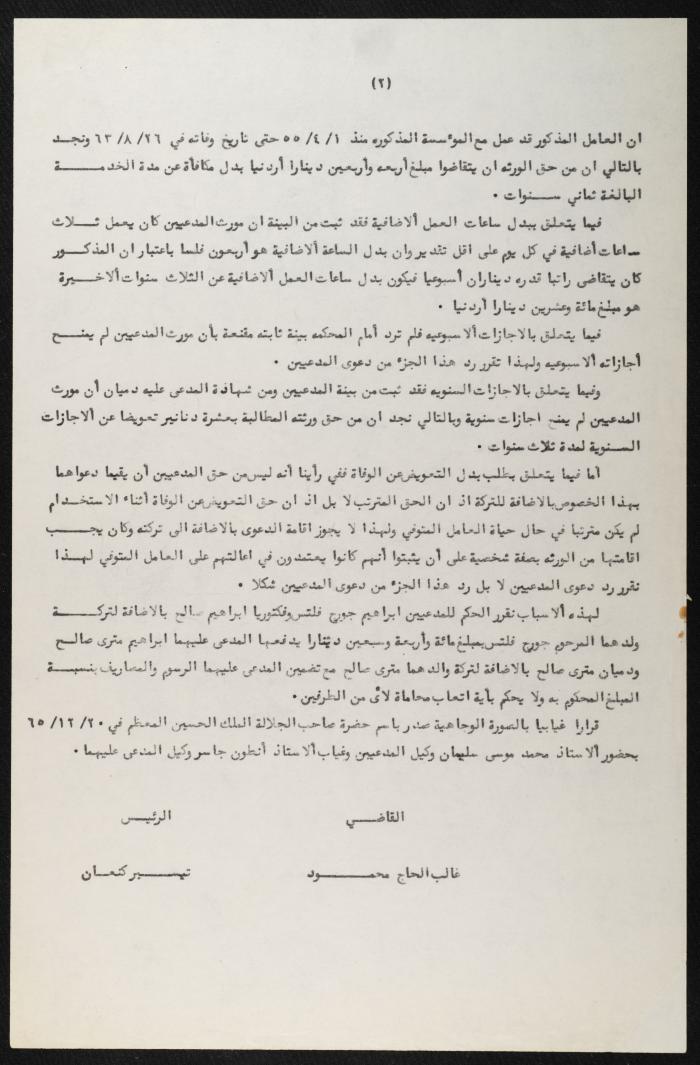 (٢)
ان العامل المذكور قد عمل مع المؤسسة المذكوره منذ ١/ ٤/ ٥٥ حتى تاريخ وفاته في ٢٦/ ٨/ ٦٣ ونجد
بالتالي ان من حق الورثه ان يتقاضوا مبلغ أربعه وأربعين دينارا أردنيا بدل مكافأة عن مدة الخدمة
البالغة ثماني سنوات .
فيما يتعلق ببدل ساعات العمل ألاضافية فقد ثبت من البينة ان مورث المدعيين كان يعمل ثلاث
ساعات أضافية في كل يوم على اقل تقدير وان بدل الساعة ألاضافية هو أربعون فلسا باعتبار ان المذكور
كان يتقاضى راتبا قدره ديناران أسبوعيا فيكون بدل ساعات العمل ألاضافية عن الثلاث سنوات ألاخيرة
هو مبلغ مائة وعشرين دينارا أردنيا .
فيما يتعلق بالاجازات ألاسبوعيه فلم ترد أمام المحكمه بينة ثابته مقنعة بأن مورث المدعيين لم يمنح
أجازاته ألاسبوعيه ولهذا تقرر رد هذا الجزء من دعوى المدعيين .
وفيما يتعلق بالاجازات السنويه فقد ثبت من بينة المدعيين ومن شهادة المدعى عليه دميان أن مورث
المدعيين لم يمنح اجازات سنوية وبالتالي نجد ان من حق ورثته المطالبة بعشرة دنانير تعويضا عن ألاجازات
السنوية لمدة ثلاث سنوات .
أما فيما يتعلق بطلب بدل التعويض عن الوفاة ففي رأينا أنه ليس من حق المدعيين أن يقيما دعواهما
بهذا الخصوص بالاضافة للتركة اذ ان الحق المترتب لا بل اذ ان حق التعويض عن الوفاة أثناء الاستخدام
لم يكن مترتبا في حال حياة العامل المتوفي ولهذا لا يجوز اقامة الدعوى بالاضافة الى تركته وكان يجب
اقامتها من الورثه بصفة شخصية على أن يثبتوا أنهم كانوا يعتمدون في اعالتهم على العامل المتوفي لهذا
نقرر رد دعوى المدعيين لا بل رد هذا الجزء من دعوى المدعيين شكلا .
لهذه ألاسباب نقرر الحكم للمدعيين ابراهيم جورج فلتس وفكتوريا ابراهيم صالح بالاضافة لتركة
ولدهما المرحوم جورج فلتس بمبلغ مائة وأربعة وسبعين دينارا يدفعها المدعى عليهما ابراهيم مترى صالح
ودميان مترى صالح بالاضافة لتركة والدهما مترى صالح مع تضمين المدعى عليهما الرسوم والمصاريف بنسبة
المبلغ المحكوم به ولا يحكم بأية اتعاب محاماة لأى من الطرفين .
قرارا غيابيا بالصورة الوجاهية صدر باسم حضرة صاحب الجلالة الملك الحسين المعظم في ٢٠/ ١٢/ ٦٥
بحضور ألاستاذ محمد موسى سليمان وكيل المدعيين وغياب ألاستاذ أنطون جاسر وكيل المدعى عليهما .
القاضي الرئيس
غالب الحاج محمود تيسير كنعان